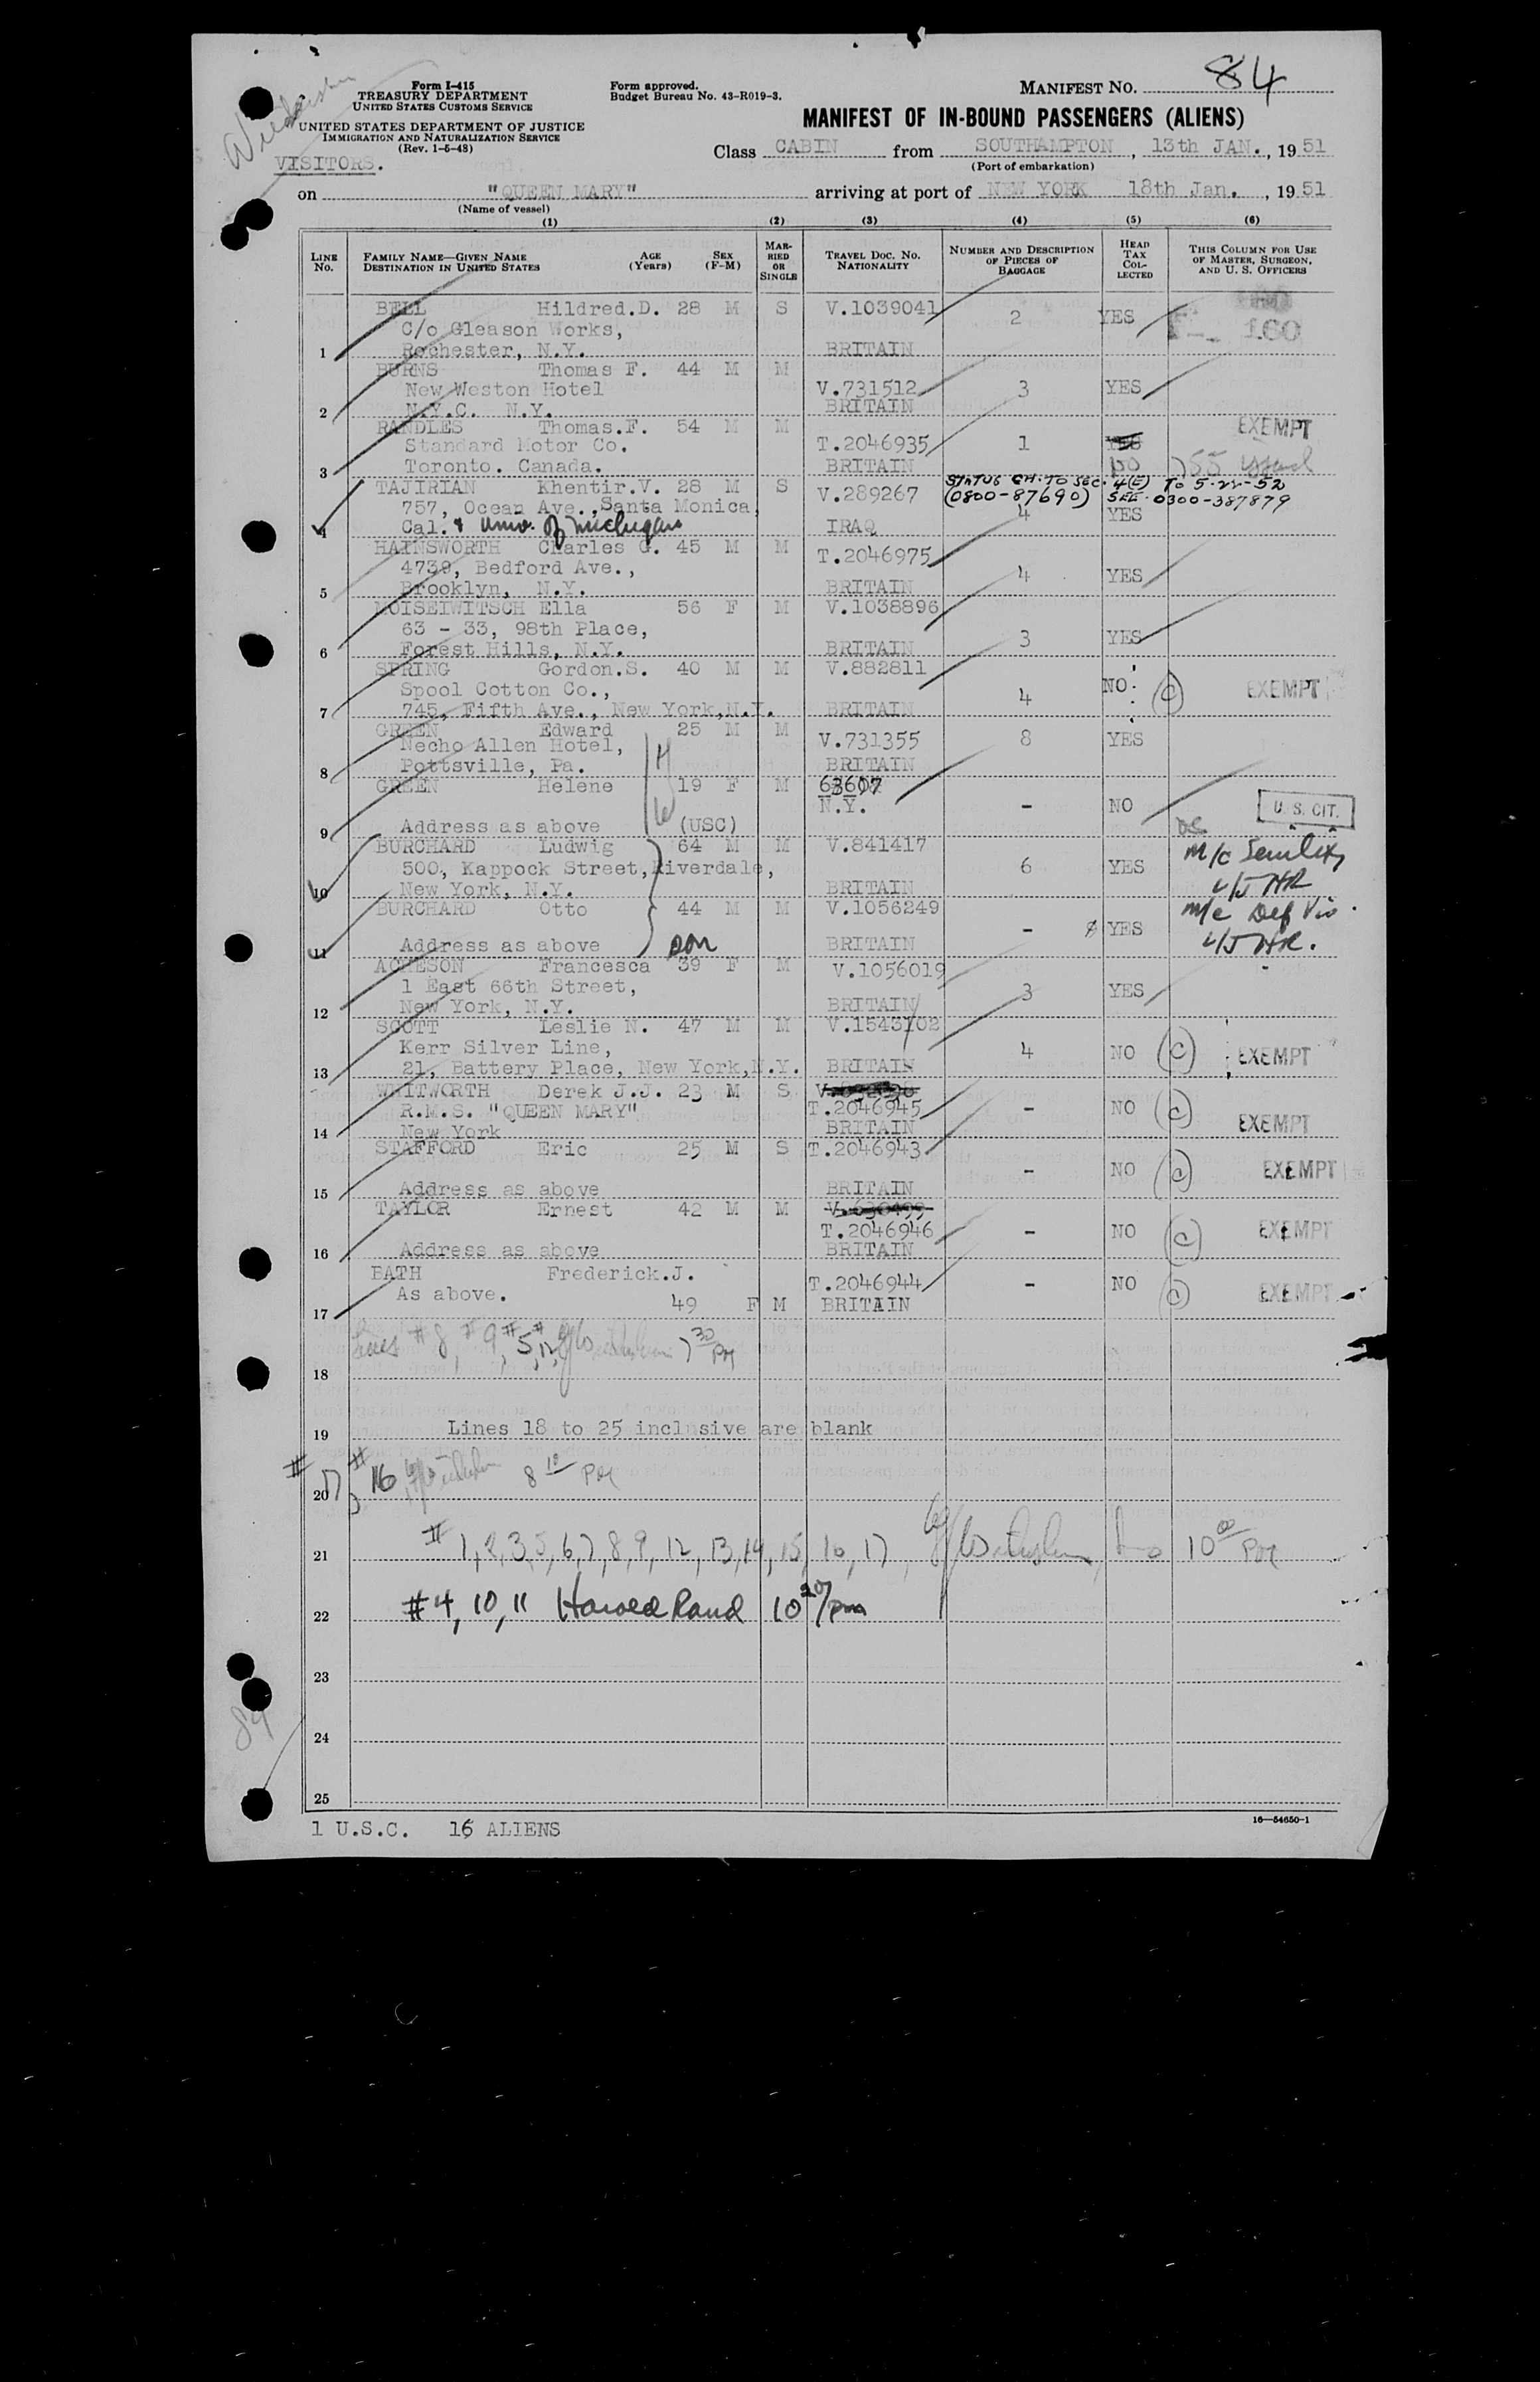 Form I-415
TREASURY DEPARTMENT
UNITED STATES CUSTOMS SERVICE
UNITED STATES DEPARTMENT OF JUSTICE
IMMIGRATION AND NATURALIZATION SERVICE
(Rev. 1-5-48)
VISITORS.
Form approved.
Budget Bureau No. 43-R019-3.
MANIFEST NO. 84
MANIFEST OF IN-BOUND PASSENGERS (ALIENS)
Class CABIN from SOUTHAMPTON, 13th JAN., 1951
(Port of embarkation)
on "QUEEN MARY" arriving at port of NEW YORK 18th Jan., 1951
(Name of vessel)
(1) (2) (3) (4) (5) (6)
LINE No. FAMILY NAME—GIVEN NAME DESTINATION IN UNITED STATES AGE (Years) SEX (F-M) MARRIED OR SINGLE TRAVEL DOC. NO. NATIONALITY NUMBER AND DESCRIPTION OF PIECES OF BAGGAGE HEAD TAX COLLECTED THIS COLUMN FOR USE OF MASTER, SURGEON, AND U. S. OFFICERS
BELL Hildred.D. 28 M S V.1039041 2 YES 160
C/o Gleason Works,
1 Rochester, N.Y. BRITAIN
BURNS Thomas F. 44 M M
New Weston Hotel V.731512 3 YES
2 N.Y.C. N.Y. BRITAIN
RANDLES Thomas.F. 54 M M EXEMPT
Standard Motor Co. T.2046935 1
3 Toronto. Canada. BRITAIN no
TAJIRIAN Khentir.V. 28 M S V.289267 STATUS CH. TO SEC. 4(E) TO 5-22-52
757, Ocean Ave.,Santa Monica, (0800-87690) SEE 0300-387879
4 Cal. & Univ. of Michigan IRAQ 4 YES
HAINSWORTH Charles G. 45 M M T.2046975
4739, Bedford Ave., 4 YES
5 Brooklyn, N.Y. BRITAIN
MOISEIWITSCH Ella 56 F M V.1038896
63 - 33, 98th Place, 3 YES
6 Forest Hills, N.Y. BRITAIN
SPRING Gordon.S. 40 M M V.882811
Spool Cotton Co., 4 NO. (C) EXEMPT
7 745, Fifth Ave., New York,N.Y. BRITAIN
GREEN Edward 25 M M V.731355 8 YES
Necho Allen Hotel, H
8 Pottsville, Pa. BRITAIN
GREEN Helene 19 F M 63607
N.Y. - NO U. S. CIT.
9 Address as above W (USC)
BURCHARD Ludwig 64 M M V.841417 m/c Senility
500, Kappock Street,Riverdale, 6 YES
10 New York, N.Y. BRITAIN HR
BURCHARD Otto 44 M M V.1056249 m/c Def Vis.
- YES
11 Address as above son BRITAIN HR.
ACHESON Francesca 39 F M V.1056019
1 East 66th Street, 3 YES
12 New York, N.Y. BRITAIN
SCOTT Leslie N. 47 M M V.1543102
Kerr Silver Line, 4 NO (C) EXEMPT
13 21, Battery Place, New York,N.Y. BRITAIN
WHITWORTH Derek J.J. 23 M S
R.M.S. "QUEEN MARY" T.2046945 - NO (C) EXEMPT
14 New York BRITAIN
STAFFORD Eric 25 M S T.2046943
- NO (C) EXEMPT
15 Address as above BRITAIN
TAYLOR Ernest 42 M M V.630499
T.2046946 - NO (C) EXEMPT
16 Address as above BRITAIN
BATH Frederick.J. T.2046944 - NO (C) EXEMPT
As above.
17 49 F M BRITAIN
Lines #8, #9, #5, 12, 7 30 PM
18
19 Lines 18 to 25 inclusive are blank
# 17, # 16 8 10 PM
20
21 # 1,2,3,5,6,7,8,9,12,13,14,15,16,17, 10 00 PM
22 #4, 10, 11 Harold Rand 10 20/pm
23
24
25
84
1 U.S.C. 16 ALIENS
16—54650-1